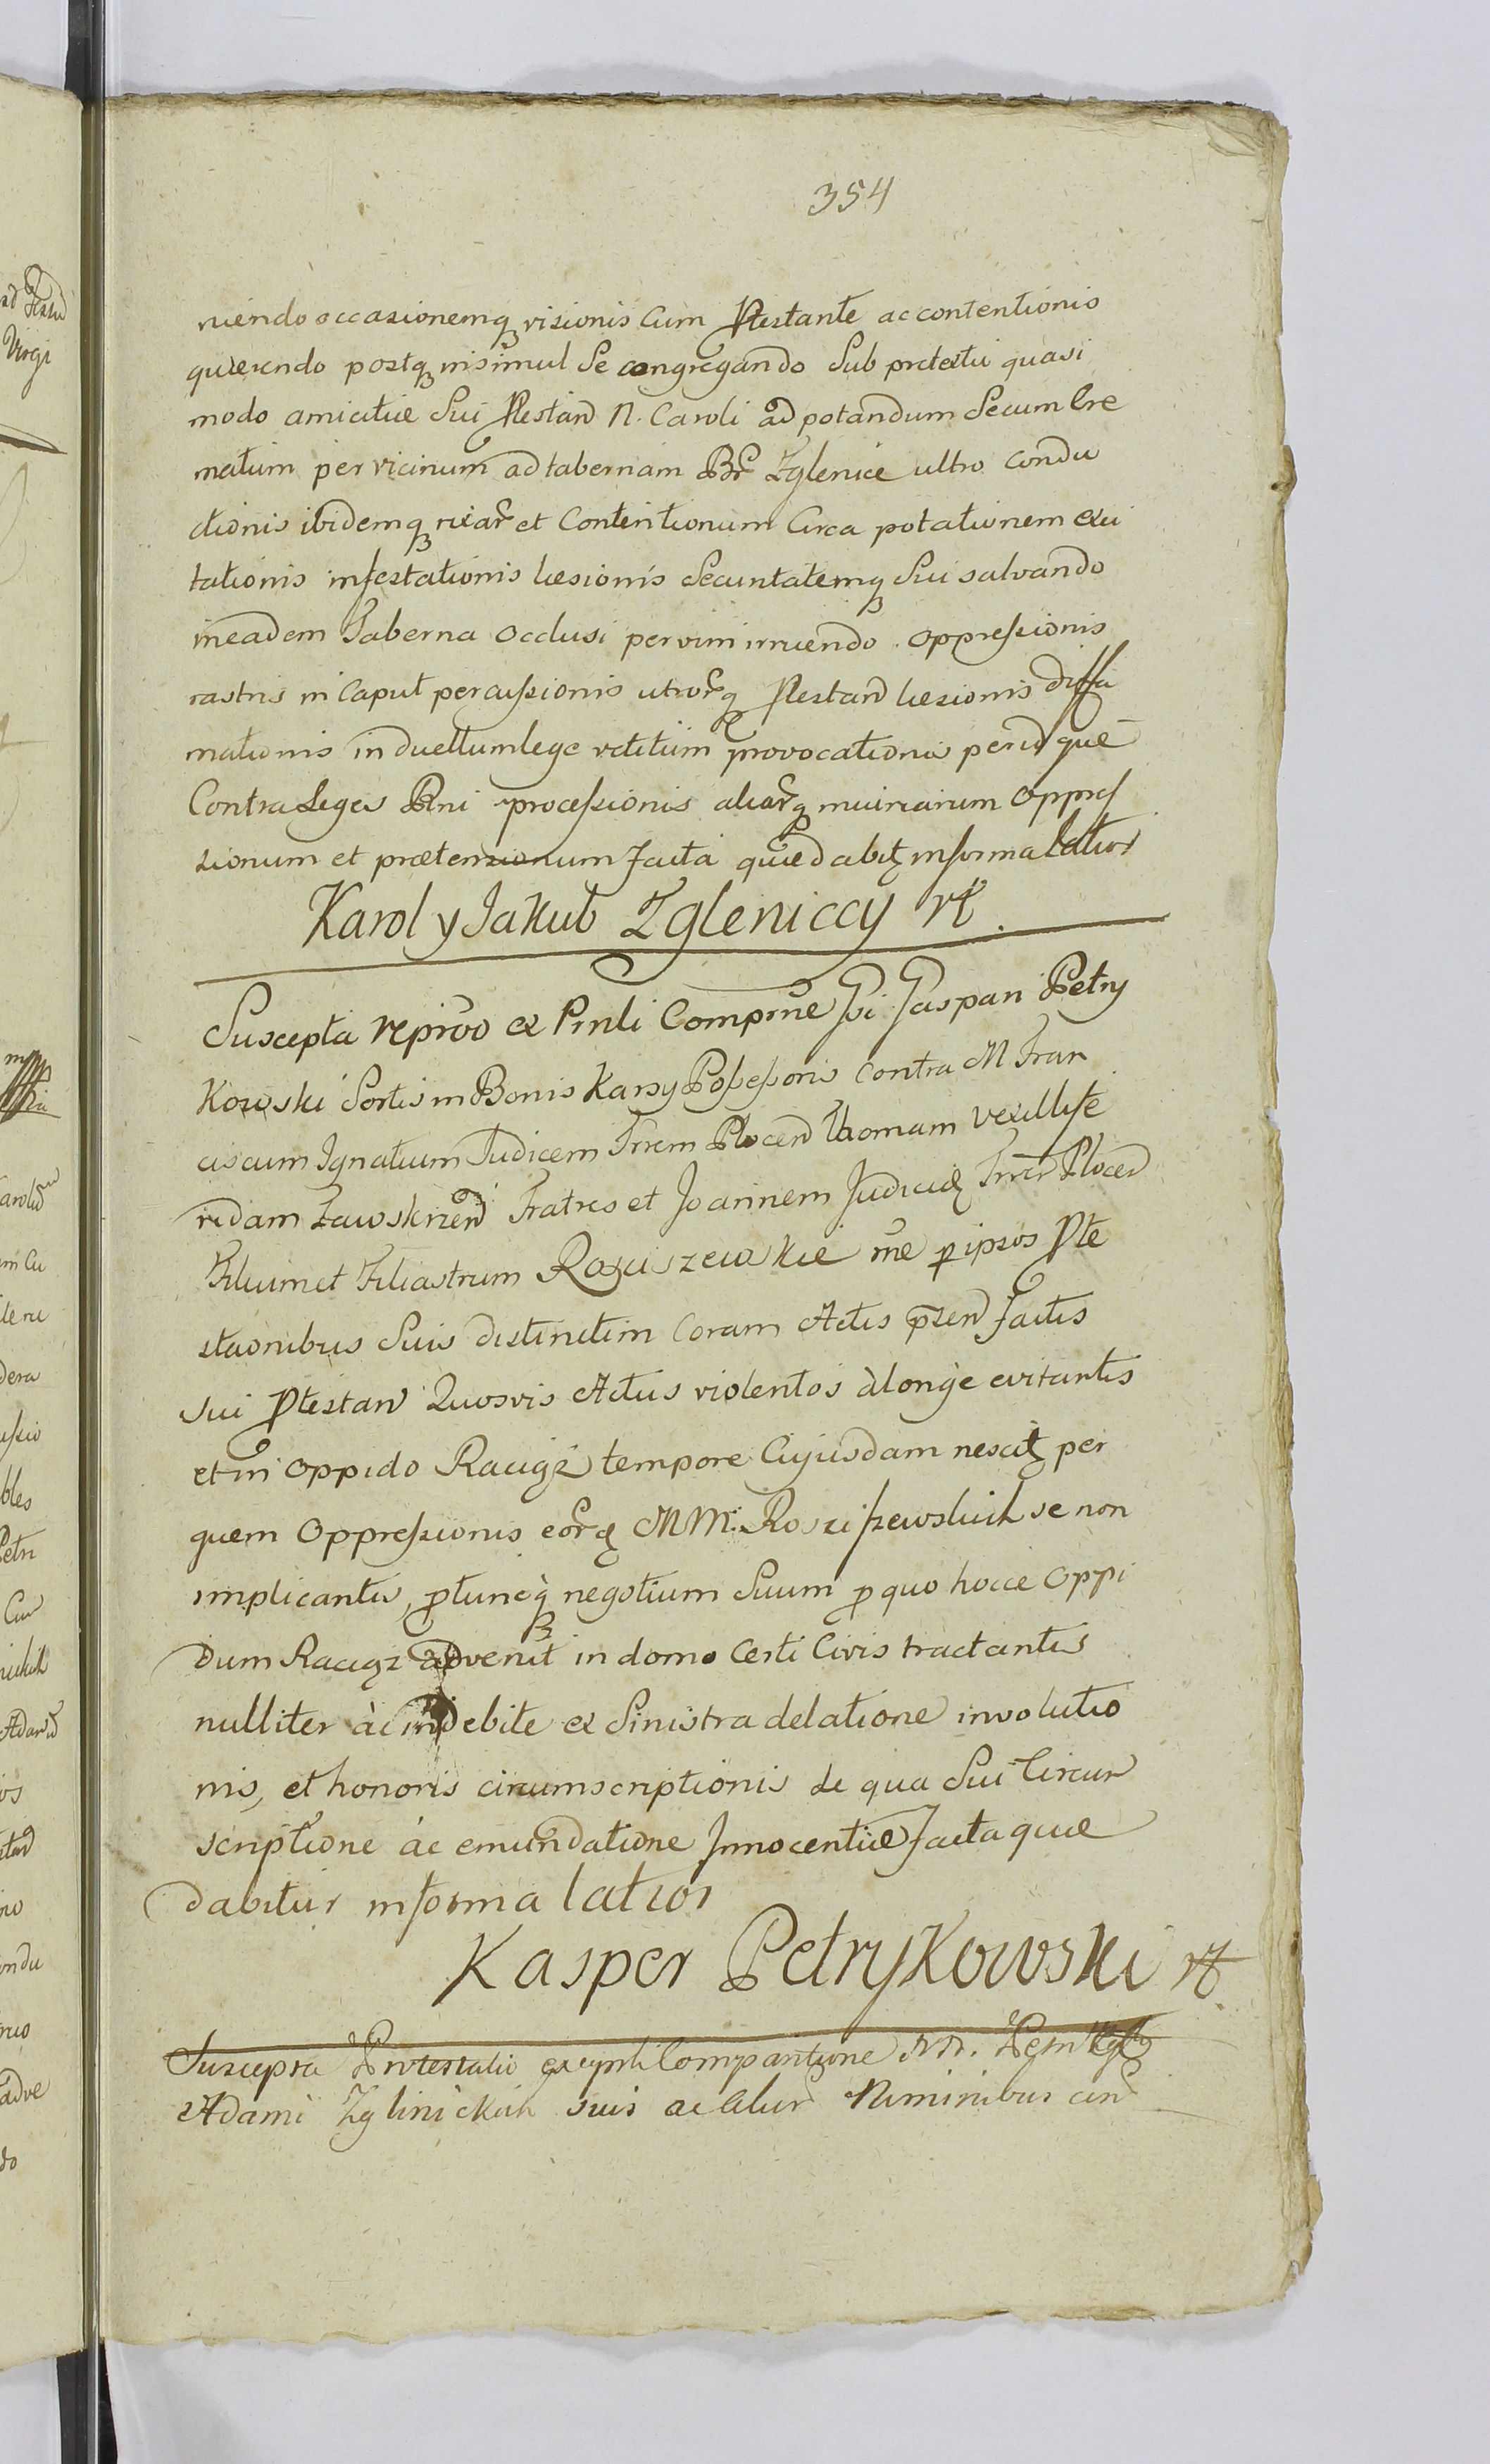 354
niendo occasionemq risionis Cum Ptestante ac contentionis
quærendo postq insimul Se congregando Sub pretextu quasi
modo amicitiæ Sui Ptestan N. Caroli ad potandum Secum Cre
matum per vicinum ad tabernam Br Zglenice ultro condu
ctionis ibidemq rixar et Contentionum Circa potationem exci
tationis infestationis læsionis Securitatemq Sui salvando
in eadem Taberna occlusi per vim irruendo oppressionis
rastris in Caput percussionis utrorq Ptestan læsionis diffa
mationis in duellum lege vetitum provocationis per id que
Contra Leges Rni processionis aliarq iniuriarum oppres
sionum et prætensionum facta quæ dabit in forma latiori
Karol y Jakub Zgleniccy
Suscepta ex Pnli Gaspari Petry
Kowski Sortis in Bonis Karsy Possessoris Contra M Fran
ciscum Ignatium Judicem Trrem Plocen Thomam Vexillife
ridam Zawskrzen Fratres et Joannem Judicid Trrer Plocen
Filium et Filiastrum Rosciszewskie ipsos Pte
staonibus Suis distinctim Coram Actis pzen factis
Sui Ptestan Quosvis Actus violentos à longè evitantis
et in oppido Raciąz tempore Cujusdam nescit per
quem oppressionis eord MM. Rosciszewskich se non
implicantis, ptuncq negotium Suum p quo hocce oppi
dum Raciąz advenit in domo Certi Civis tractantis
nulliter àc indebite ex Sinistra delatione involutio
nis, et honoris circumscriptionis de qua Sui Circum
scriptione àc emundatione Innocentiæ facta quæ
dabitur in forma latiori
Kasper Petrykowski
Suscepta Protestatio
Adami Zglinickich suis ac